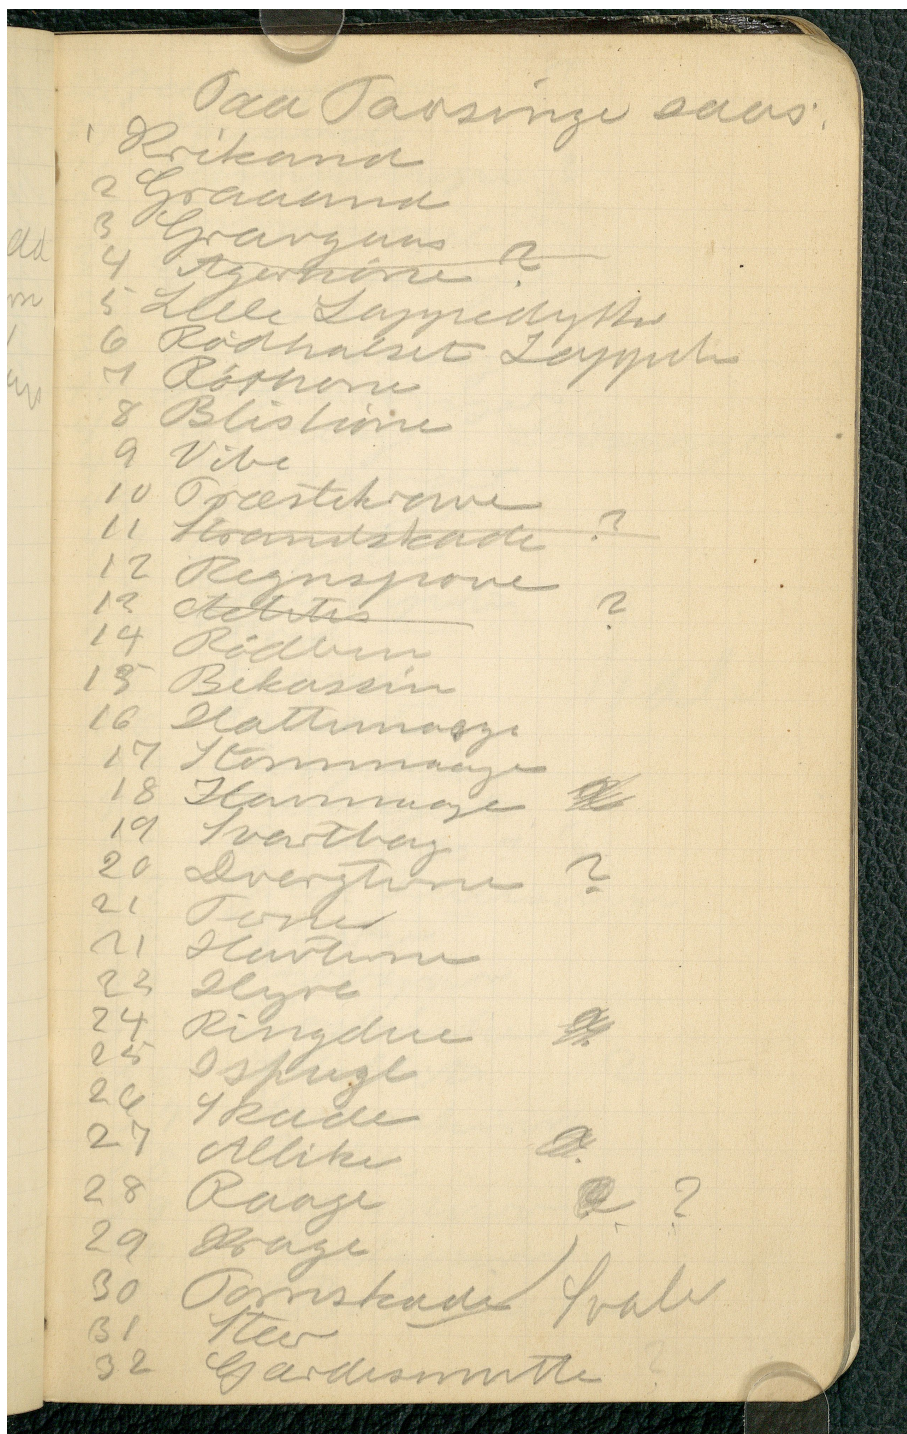 Paa Taasinge saas:
1 Krikand
2 Graaand
3 Gravgaas
4 Agerhøne ?
5 Lille Lappedykker
6 Rødhalset Lappedk
7 Rørhøne
8 Blishøne
9 Vibe
10 Præstekrave
11 Strandskade ?
12 Regnspove
13 ?
14 Rødben
15 Bekassin
16 Hættemaage
17 Stormmaage
18 Havmaage
19 Svartbag
20 Dværgterne ?
21 Terne
21 Havterne
23 Hejre
24 Ringdue
25 Isfugl
26 Skade
27 Allike
28 Raage ?
29 Krage
30 Tornskade ) Svale
31 Stær
32 Gærdesmutte ?